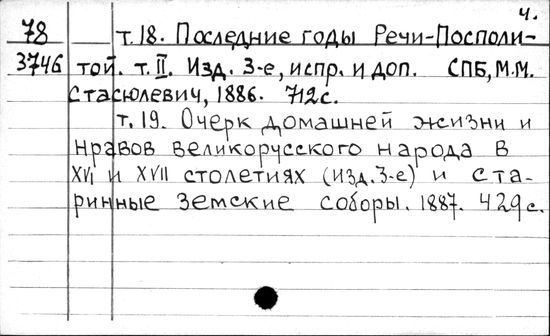 4.
78 т.18. Последние годы Речи-Посполи-
3746 той. т. II. Изд. 3-е, испр. и доп. СПБ, М.М.
Стасюлевич, 1886. 712 с.
т. 19. Очерк домашней жизни и
нравов великорусского народа в
XVI и XVII столетиях (изд. 3-е) и ста-
ринные земские соборы. 1887. 429 с.